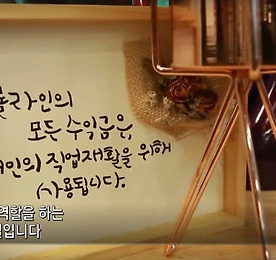 라인의
모든 수익금은,
인의 직업재활을 위해
사용됩니다.
역할을 하는
입니다